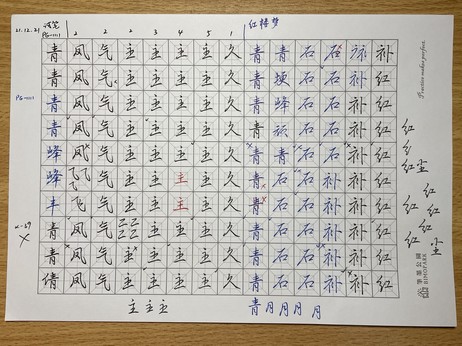 21.12.21 红楼梦
PG-1111 2 2 2 3 4 5 1
青 凤 气 主 主 主 主 久 青 青 石 石 补
青 凤 气 主 主 主 主 久 青 埂 石 石 石 红
PG-1111 青 凤 气 主 主 主 主 久 青 峰 石 石 石 红
青 凤 气 主 主 主 主 久 青 该 石 石 石 红
峰 凤 气 主 主 主 主 久 青 青 石 石 石 红
峰 飞 气 主 主 主 主 久 青 石 石 补 补 红
丰 飞 气 主 主 主 主 久 青 石 石 补 补 红
青 凤 气 主 主 主 久 青 石 石 补 补 红
青 凤 气 主 主 主 主 久 青 石 石 补 补 红
倩 凤 气 主 主 主 主 久 青 石 石 补 补 红
主 主 主 青 月 月 月 月
Practice makes perfect.
红
红 尘
红
红 红
红
红 尘
笔墨公园
BIMOPARK